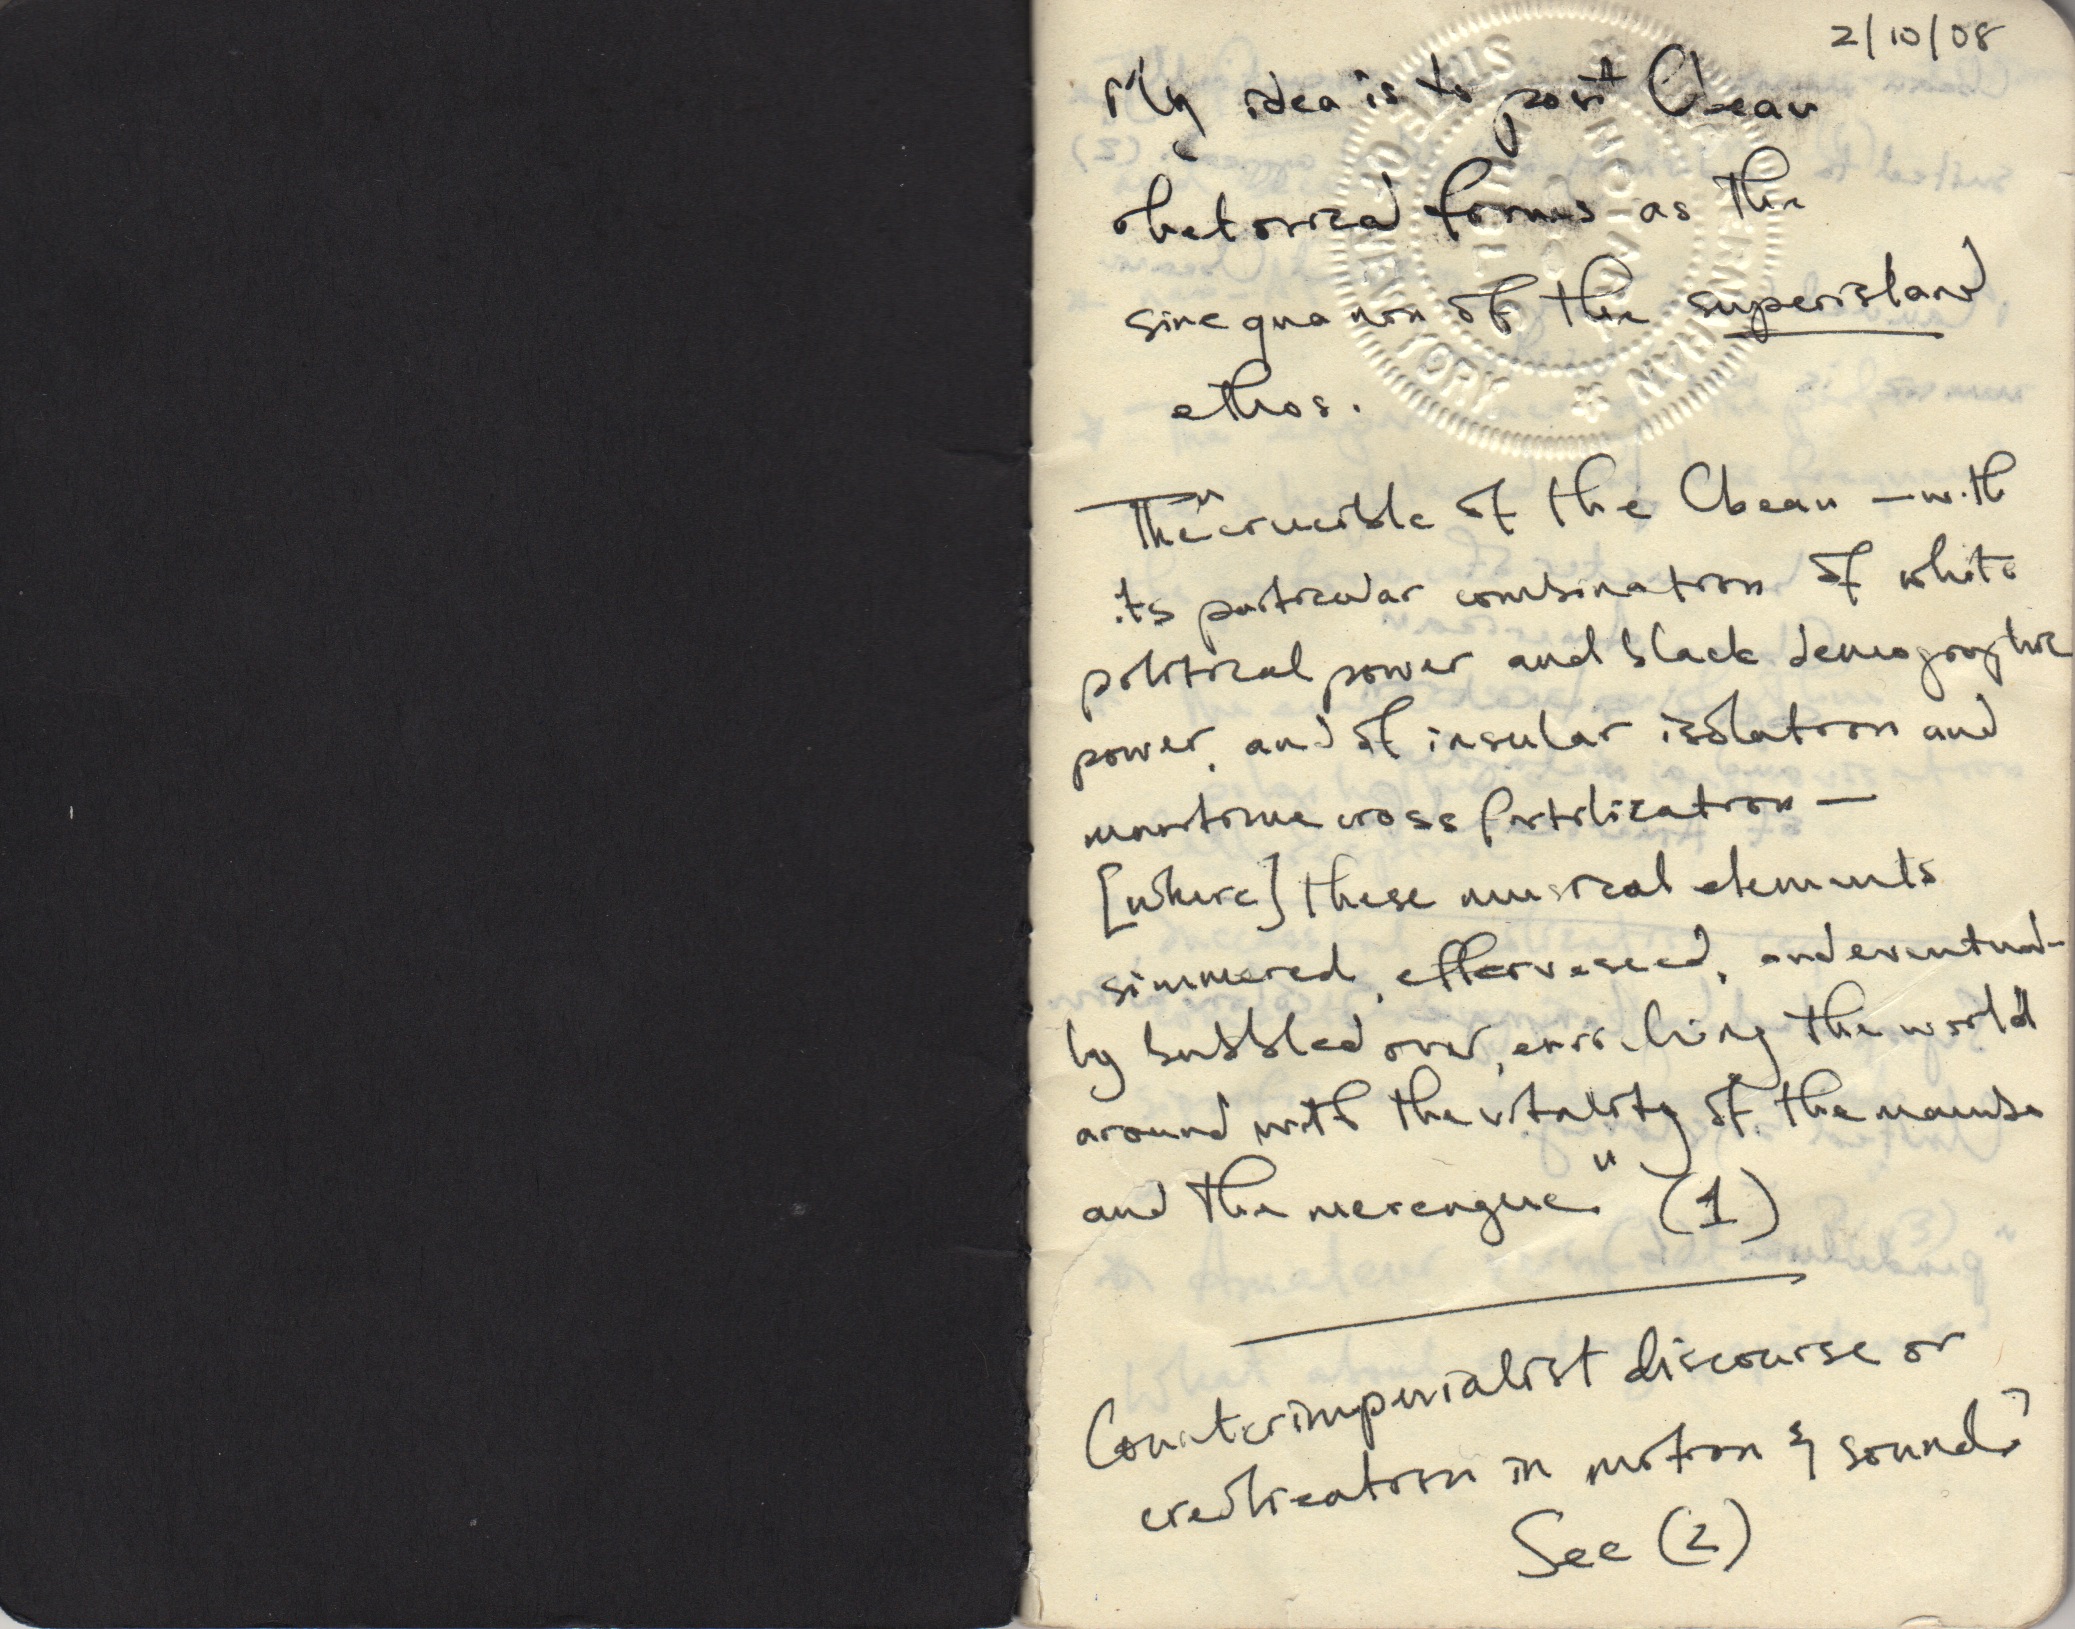 2/10/08
My idea is to posit Cbean
rhetorical forms as the
sine qua non of the superisland
ethos.
The "crucible of the Cbean — with
its particular combination of white
political power and black demographic
power, and of insular isolation and
maritime cross fertilization —
[where] these musical elements
simmered, effervesced, and eventual-
ly bubbled over, enriching the world
around with the vitality of the mambo
and the merengue." (1)
Counterimperialist discourse or
in motion & sound?
See (2)
NEW YORK